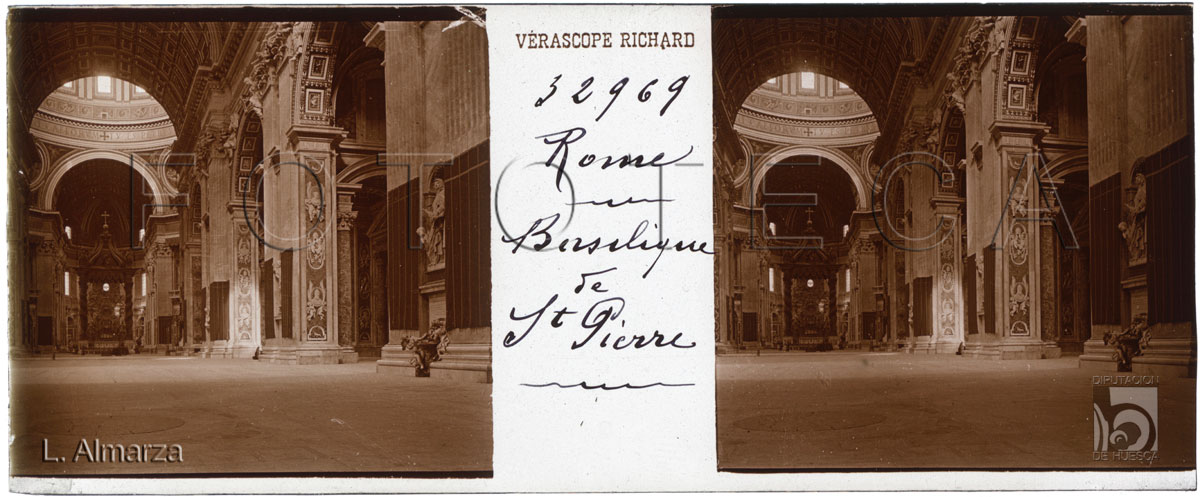 VÉRASCOPE RICHARD
32969
Rome
Basilique
de
St Pierre
FOTOTECA
L. Almarza
DIPUTACIÓN
DE HUESCA